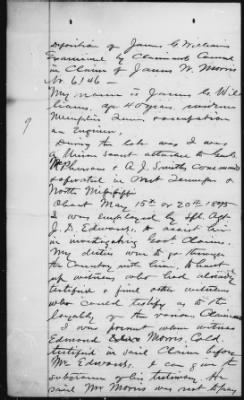 Deposition of James G. Williams
Examined by Claimants Counsel
in Claim of James W. Morris
No. 6146 —
My name is James G. Wil
liams, age 40 years, residence
Memphis Tenn, occupation
an Engineer,
During the late war I was
a Union scout attached to Genls
McPherson & A.J. Smith's Command
operated in West Tennessee &
North Mississippi
About May 15th or 20th 1875
I was employed by Spl. Agt
J. D. Edwards, to assist him
in investigating Govt Claims.
My duties were to go through
the Country with him, to hunt
up witnesses who had already
testified & find other witnesses
who could testify as to the
loyalty of the various Claimants
I was present when witness
Edmond Morris, Cold.
testified in said Claim before
Mr Edwards. I can give the
substance of his testimony. He
said Mr Morris was not
9